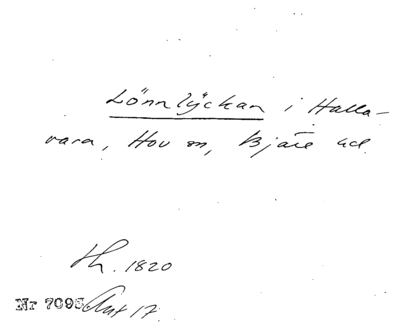 Lönnlyckan i Halla-
vara, Hov sn, Bjäre hd.
Th. 1820
Nr 7095 Ant 17